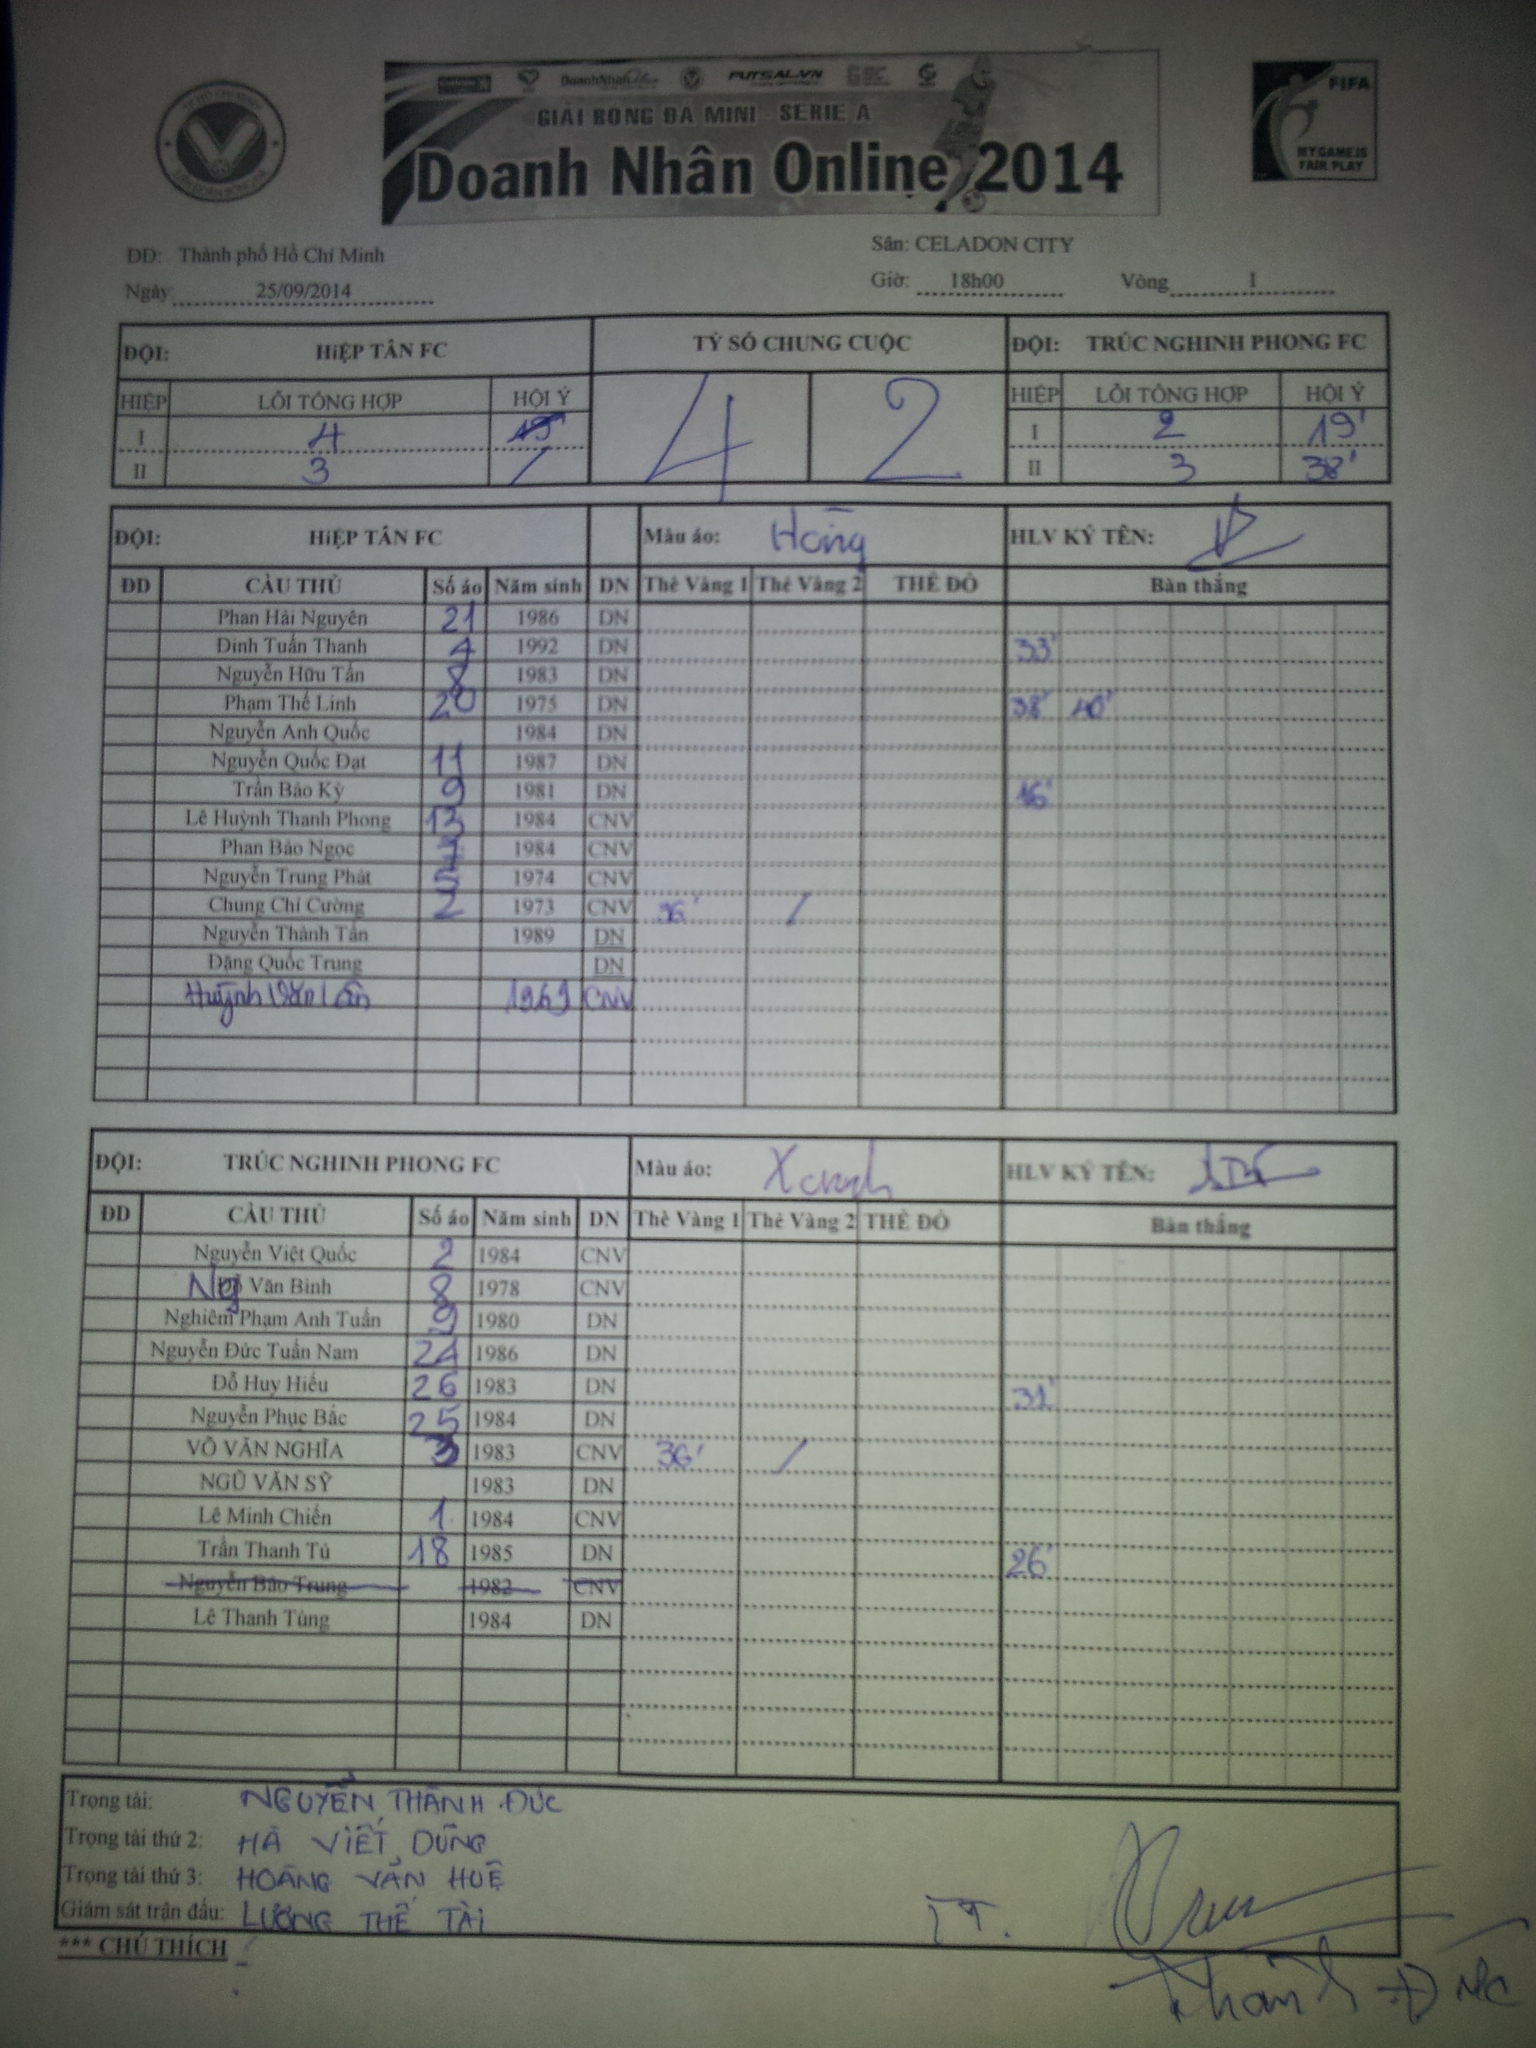 DoanhNhânOnline FUTSAL.VN
GIẢI BÓNG ĐÁ MINI - SERIE A
Doanh Nhân Online 2014
FIFA
MY GAME IS
FAIR PLAY
ĐĐ: Thành phố Hồ Chí Minh Sân: CELADON CITY
Ngày 25/09/2014 Giờ: 18h00 Vòng 1
ĐỘI: HiỆP TÂN FC TỶ SỐ CHUNG CUỘC ĐỘI: TRÚC NGHINH PHONG FC
HIỆP LỖI TỔNG HỢP HỘI Ý 4 2 HIỆP LỖI TỔNG HỢP HỘI Ý
I 4 I 2 19'
II 3 / II 3 38'
ĐỘI: HiỆP TÂN FC Màu áo: Hồng HLV KÝ TÊN:
ĐD CẦU THỦ Số áo Năm sinh DN Thẻ Vàng 1 Thẻ Vàng 2 THẺ ĐỎ Bàn thắng
Phan Hải Nguyên 21 1986 DN
Đinh Tuấn Thanh 4 1992 DN 33'
Nguyễn Hữu Tấn 8 1983 DN
Phạm Thế Linh 20 1975 DN 38' 40'
Nguyễn Anh Quốc 1984 DN
Nguyễn Quốc Đạt 11 1987 DN
Trần Bảo Kỳ 9 1981 DN 16'
Lê Huỳnh Thanh Phong 13 1984 CNV
Phan Bảo Ngọc 1984 CNV
Nguyễn Trung Phát 1974 CNV
Chung Chí Cường 2 1973 CNV 36' /
Nguyễn Thành Tấn 1989 DN
Đặng Quốc Trung DN
Huỳnh Văn 1969 CNV
ĐỘI: TRÚC NGHINH PHONG FC Màu áo: Xanh HLV KÝ TÊN:
ĐD CẦU THỦ Số áo Năm sinh DN Thẻ Vàng 1 Thẻ Vàng 2 THẺ ĐỎ Bàn thắng
Nguyễn Việt Quốc 2 1984 CNV
Ng Văn Bình 8 1978 CNV
Nghiêm Phạm Anh Tuấn 9 1980 DN
Nguyễn Đức Tuấn Nam 24 1986 DN
Đỗ Huy Hiếu 26 1983 DN 31'
Nguyễn Phục Bắc 25 1984 DN
VÕ VĂN NGHĨA 3 1983 CNV 36' /
NGŨ VĂN SỸ 1983 DN
Lê Minh Chiến 1 1984 CNV
Trần Thanh Tú 18 1985 DN 26'
Nguyễn Bảo Trung 1982 CNV
Lê Thanh Tùng 1984 DN
Trọng tài: NGUYỄN THÀNH ĐỨC
Trọng tài thứ 2: HÀ VIẾT DŨNG
Trọng tài thứ 3: HOÀNG VĂN HUỆ
Giám sát trận đấu: LƯƠNG THẾ TÀI
TT.
*** CHÚ THÍCH
Thành Đức